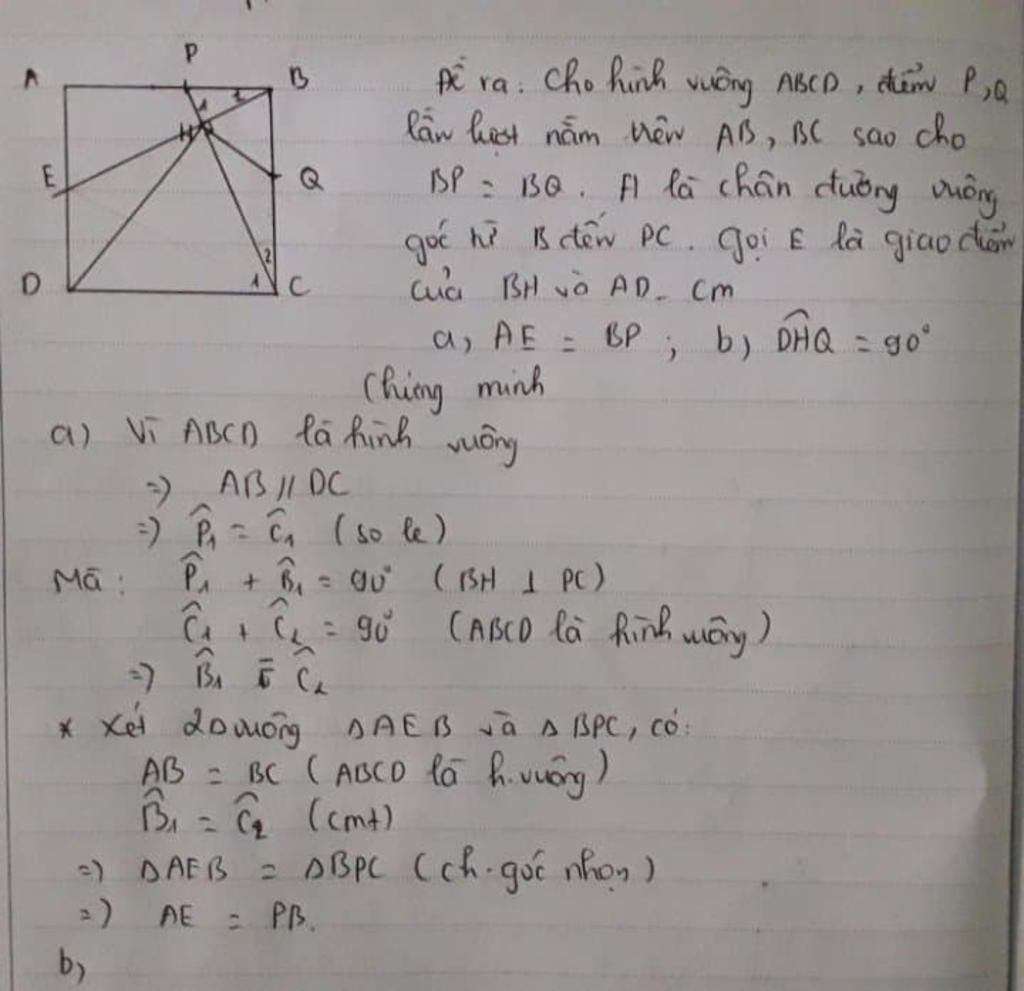 P
A
B
1
1
H
E
Q
2
D
1
C
Đề ra: Cho hình vuông ABCD, điểm P,Q
lần lượt nằm trên AB, BC sao cho
BP = BQ. H là chân đường vuông
góc từ B đến PC. Gọi E là giao điểm
của BH và AD. Cm
a, AE = BP ; b) \widehat{DHQ} = 90°
Chứng minh
a) Vì ABCD là hình vuông
=) AB // DC
=) \widehat{P}₁ = \widehat{C}₁ (so le)
Mà: \widehat{P}₁ + \widehat{B}₁ = 90° (BH ⊥ PC)
\widehat{C}₁ + \widehat{C}₂ = 90° (ABCD là hình vuông)
=) \widehat{B}₁ = \widehat{C}₂
* Xét 2Δ vuông ΔAEB và ΔBPC, có:
AB = BC (ABCD là h.vuông)
\widehat{B}₁ = \widehat{C}₂ (cmt)
=) ΔAEB = ΔBPC (ch-góc nhọn)
=) AE = PB.
b,